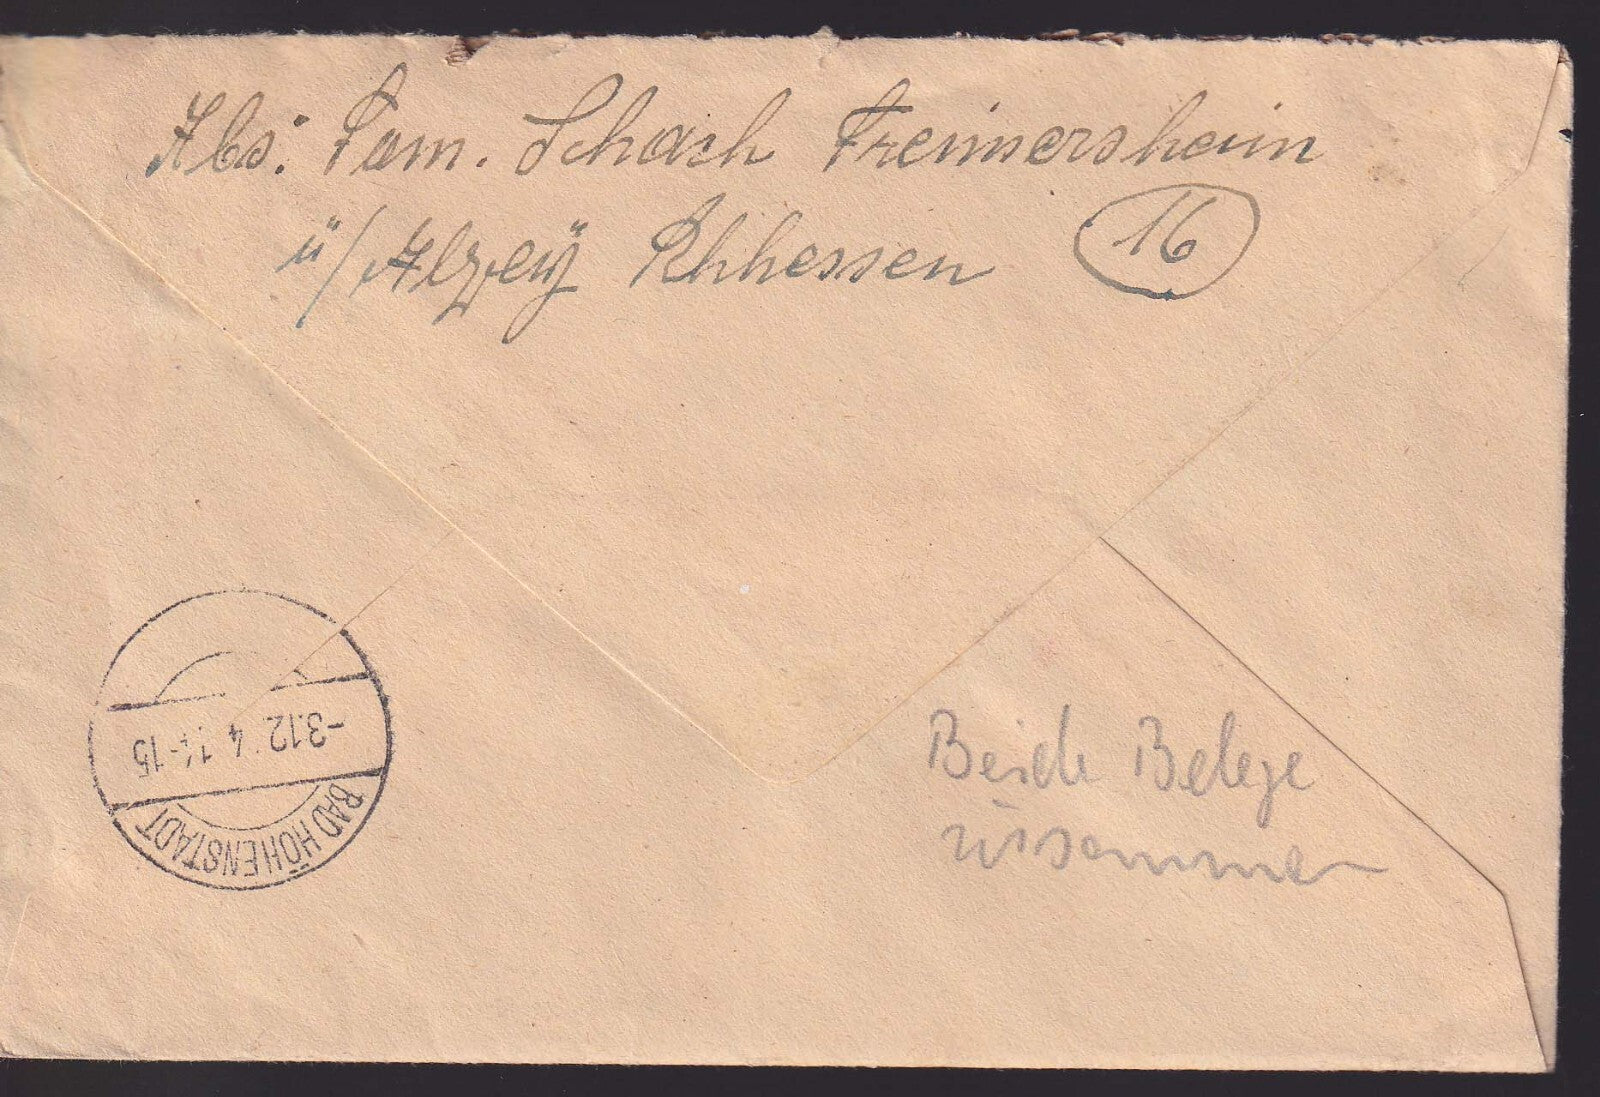 Abs: Fam. Schach Freimersheim
ü/Alzey Rhhessen 16
-3.12.4 14-15
BAD HÖHENSTADT
Beide Belege
zusammen